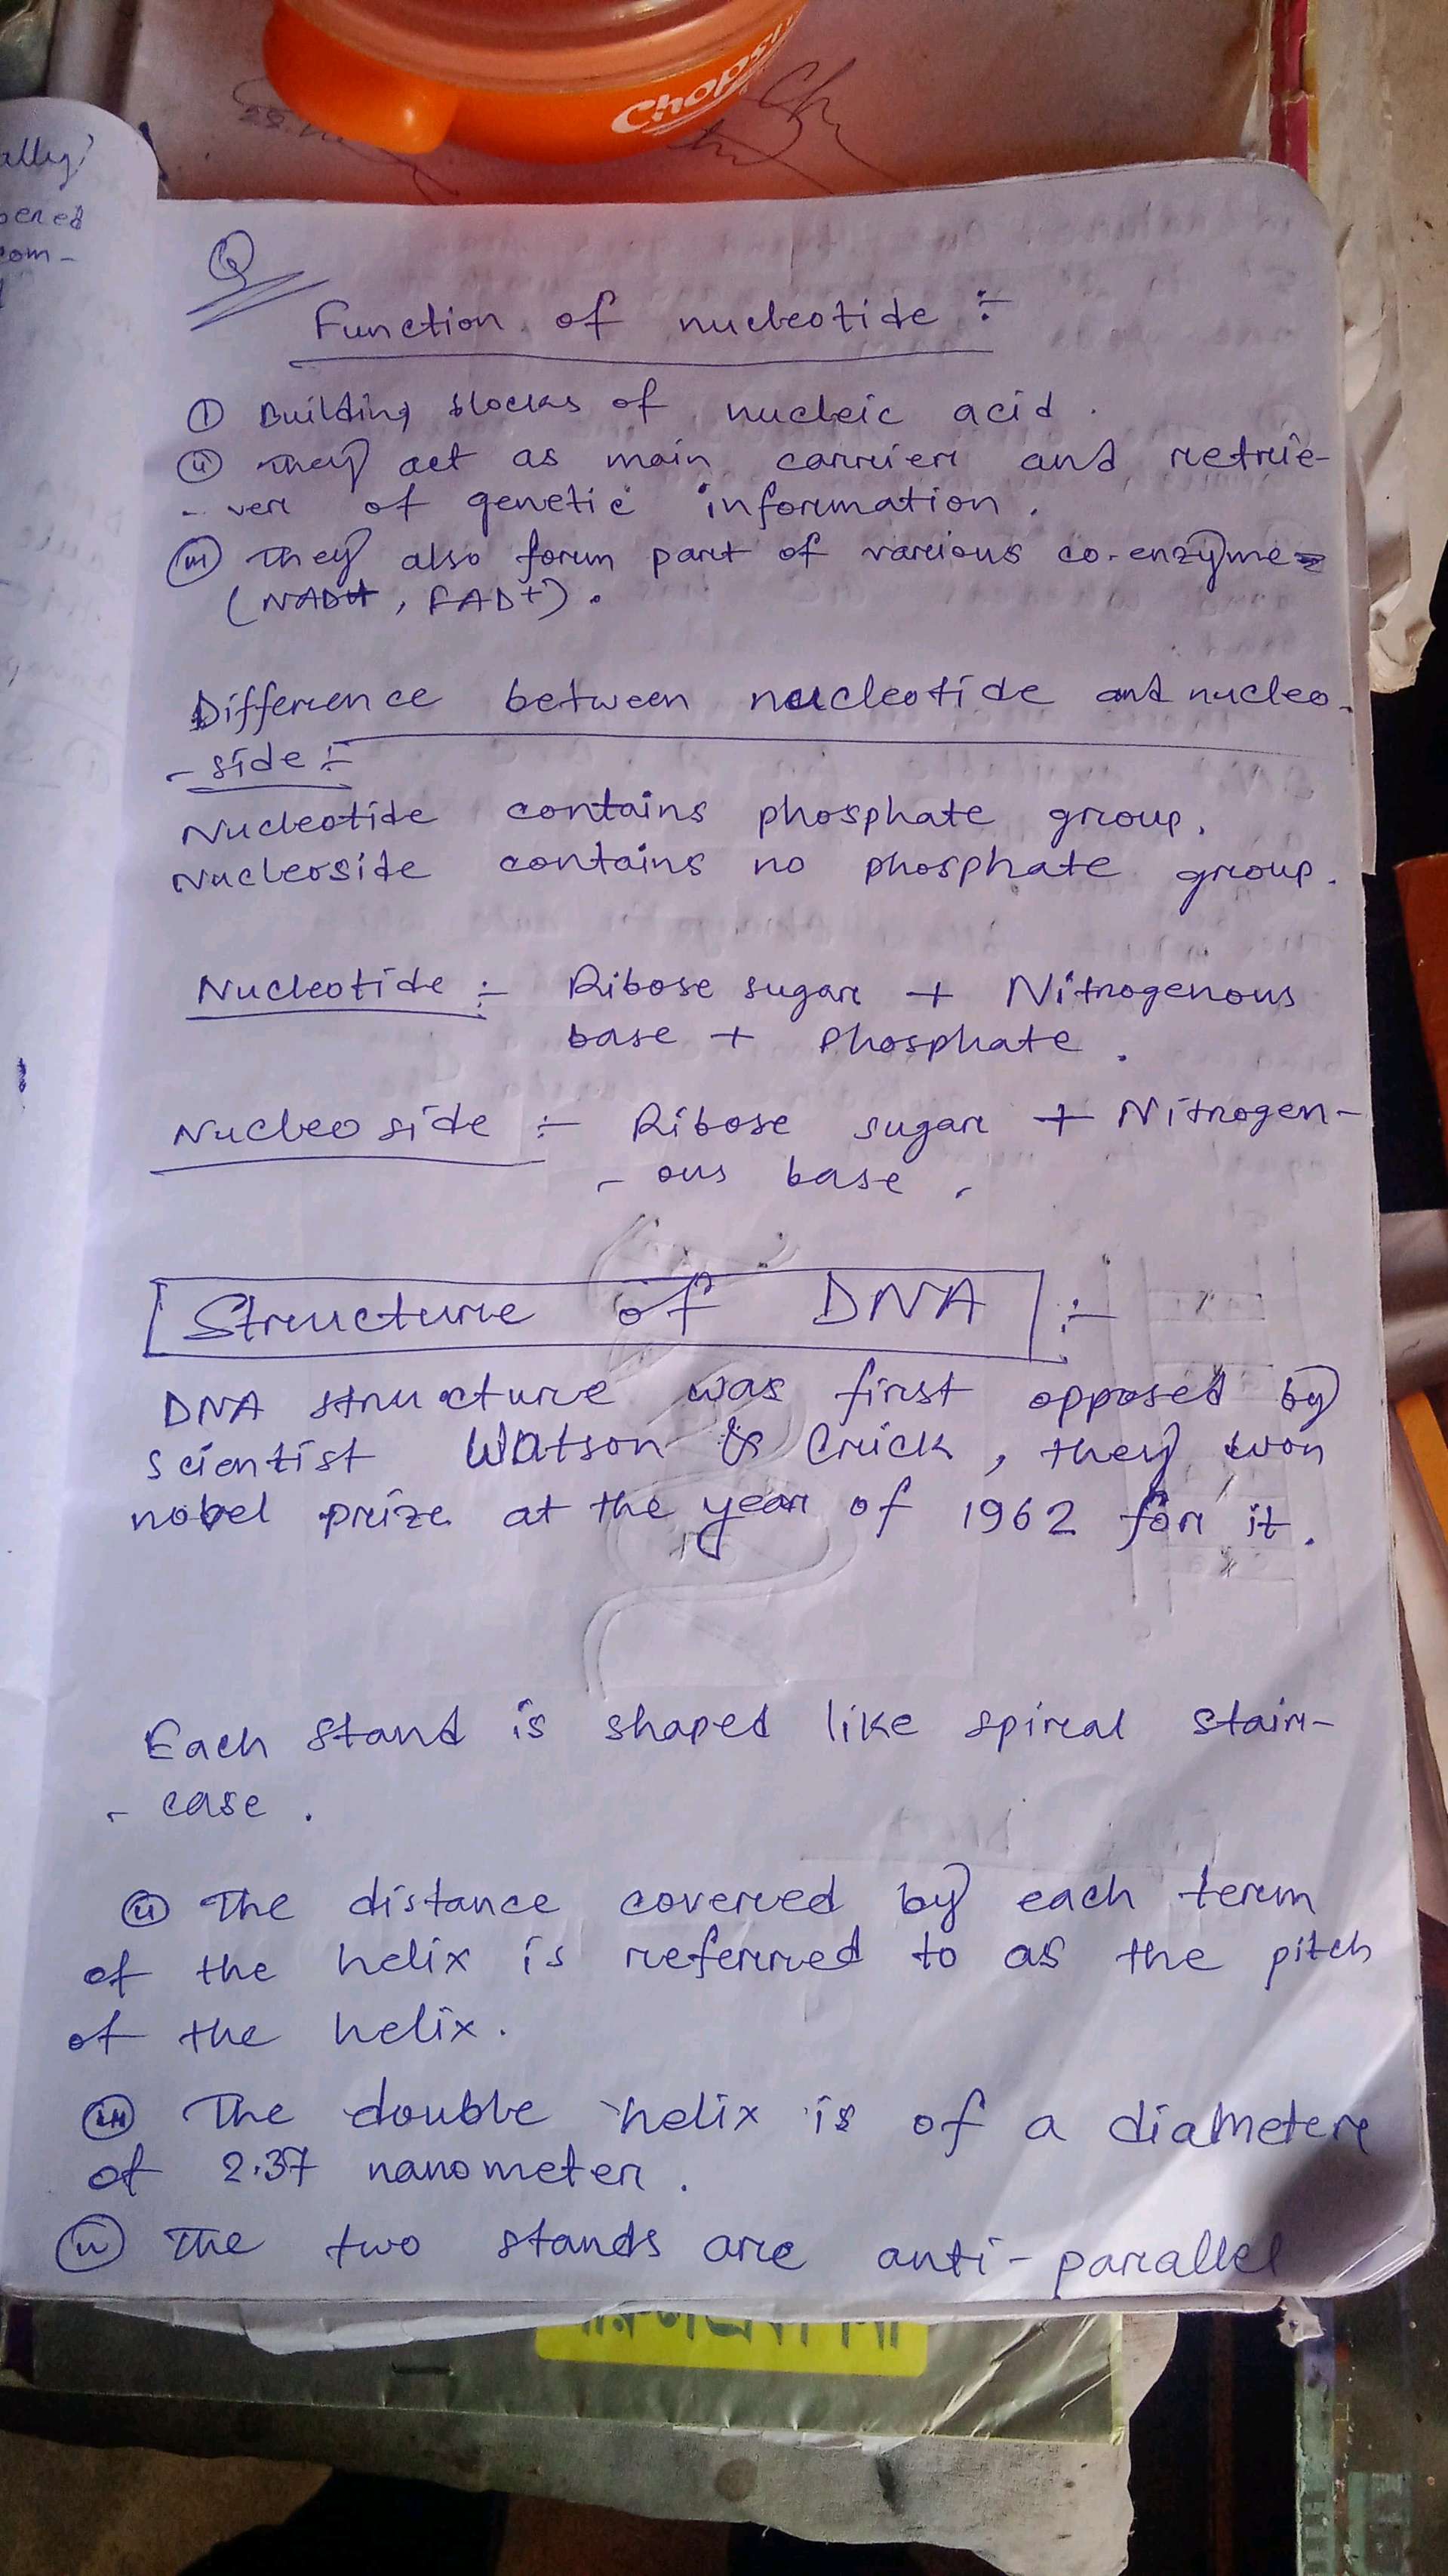 Chops
ally
bered
com-
Q
Function of nucleotide :-
(i) Building blocks of nucleic acid.
(ii) They act as main carrier and retrie-
- ver of genetic information.
(iii) They also form part of various co-enzymes
(NAD+, FAD+).
Difference between nucleotide and nucleo-
- side :-
Nucleotide contains phosphate group.
Nucleoside contains no phosphate group.
Nucleotide :- Ribose sugar + Nitrogenous
base + Phosphate.
Nucleoside :- Ribose sugar + Nitrogen-
- ous base.
Structure of DNA :-
DNA structure was first opposed by
scientist Watson & Crick, they won
nobel prize at the year of 1962 for it.
Each stand is shaped like spiral stair-
- case.
(ii) The distance covered by each term
of the helix is referred to as the pitch
of the helix.
(iii) The double helix is of a diameter
of 2.37 nanometer.
(iv) The two stands are anti-parallel